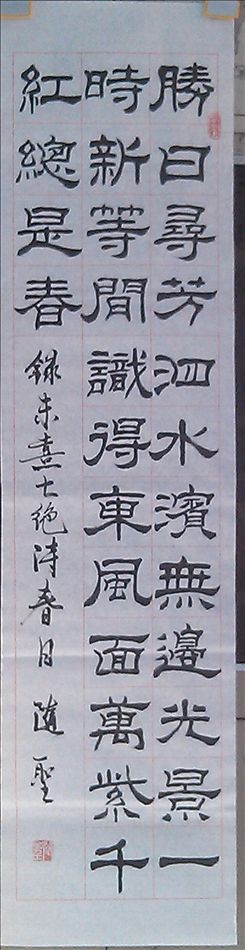 勝日尋芳泗水濱無邊光景一
時新等閒識得東風面萬紫千
紅總是春
錄朱熹七絕詩春日 隨聖